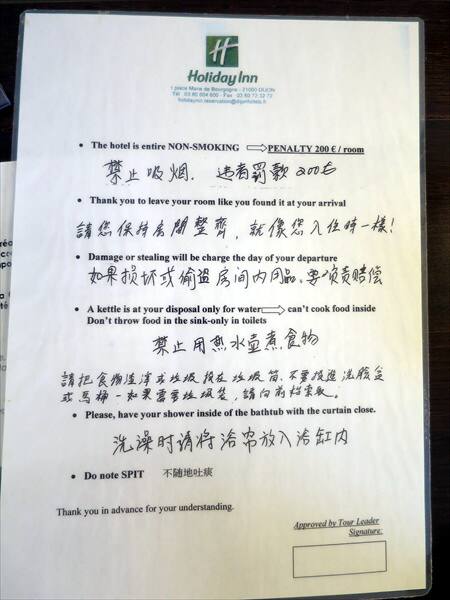 Holiday Inn
1 place Marie de Bourgogne - 21000 DIJON
• The hotel is entire NON-SMOKING ⇨ PENALTY 200 € / room
禁止吸烟. 违者罚款200右
• Thank you to leave your room like you found it at your arrival
請您保持房間整齊, 就像您入住時一樣!
• Damage or stealing will be charge the day of your departure
如果损坏或偷盗房间内用品、要负责赔偿
• A kettle is at your disposal only for water ⇨ can't cook food inside
Don't throw food in the sink-only in toilets
禁止用热水壶煮食物
請把食物渣滓或垃圾投在垃圾筒. 不要投進洗臉盆
或馬桶-如果需要垃圾袋, 請向前檯索取.
• Please, have your shower inside of the bathtub with the curtain close.
洗澡时请将浴帘放入浴缸内
• Do note SPIT 不随地吐痰
Thank you in advance for your understanding.
Approved by Tour Leader
Signature: